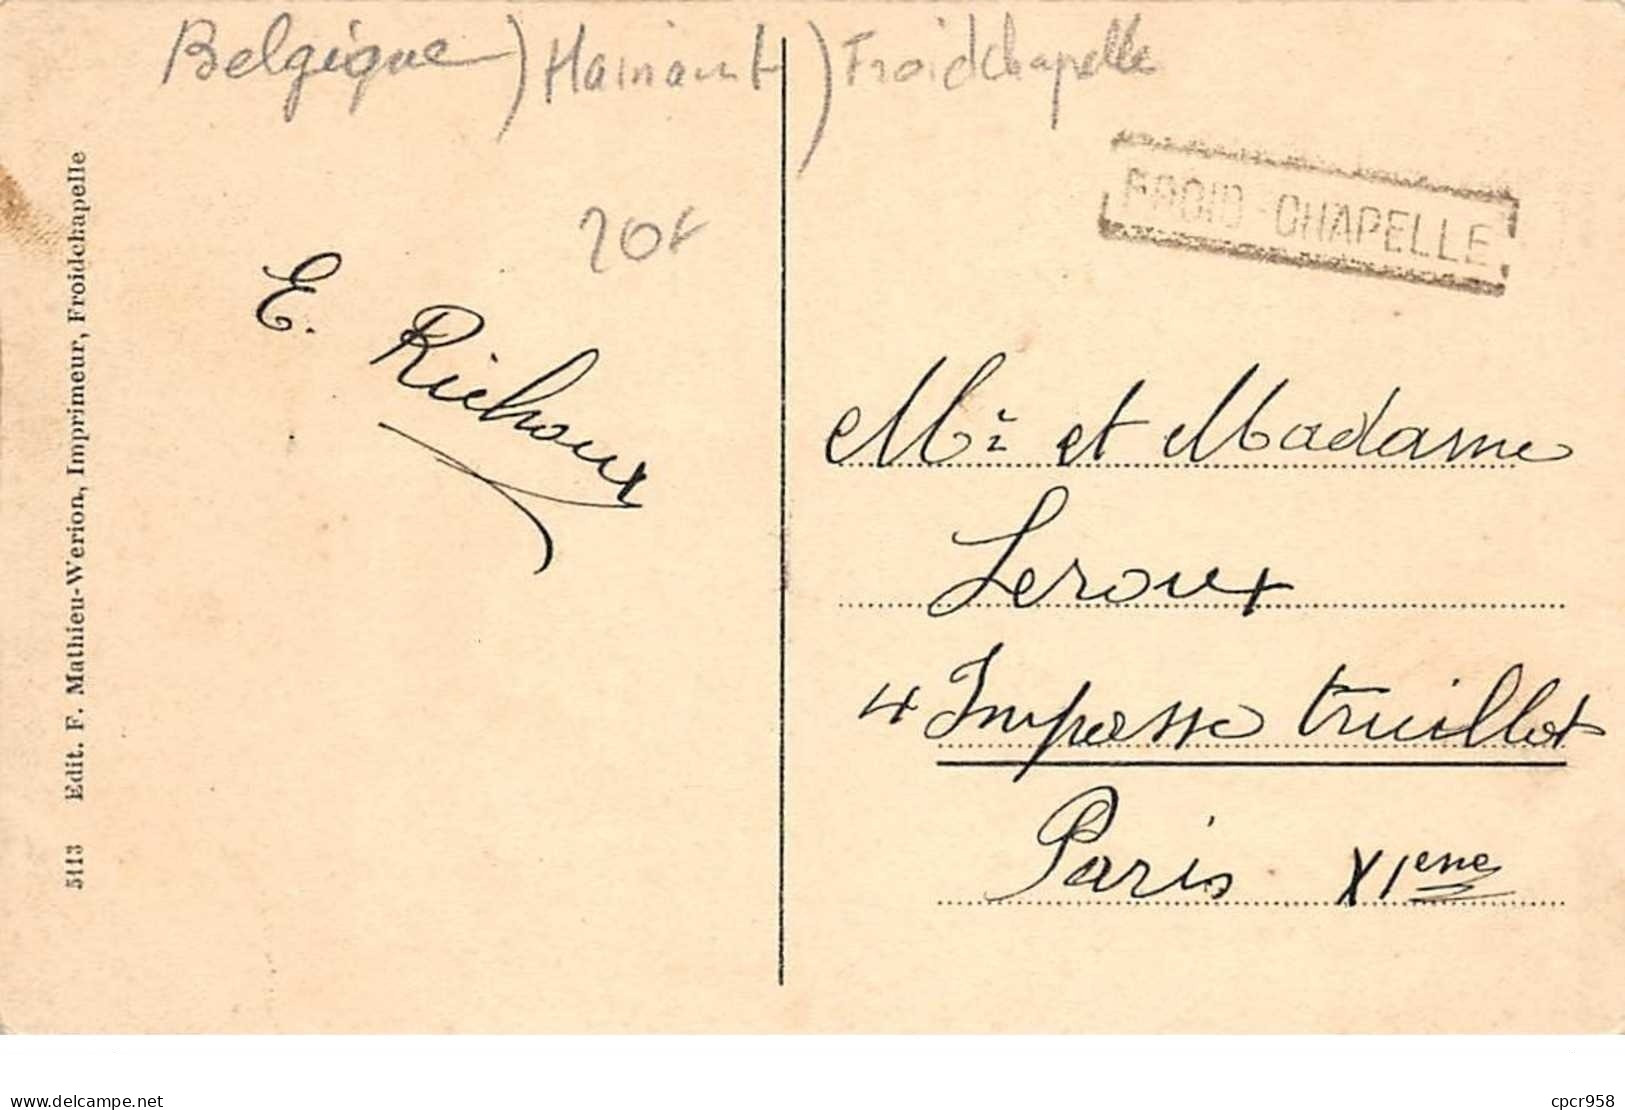 Belgique ) Hainaut ) Froidchapelle
FROID-CHAPELLE
20f
E. Richoux
Mr et Madame
Leroux
4 Impasse Truillot
Paris XIeme
5113 Edit. F. Mathieu-Werion, Imprimeur, Froidchapelle
www.delcampe.net
cpcr958